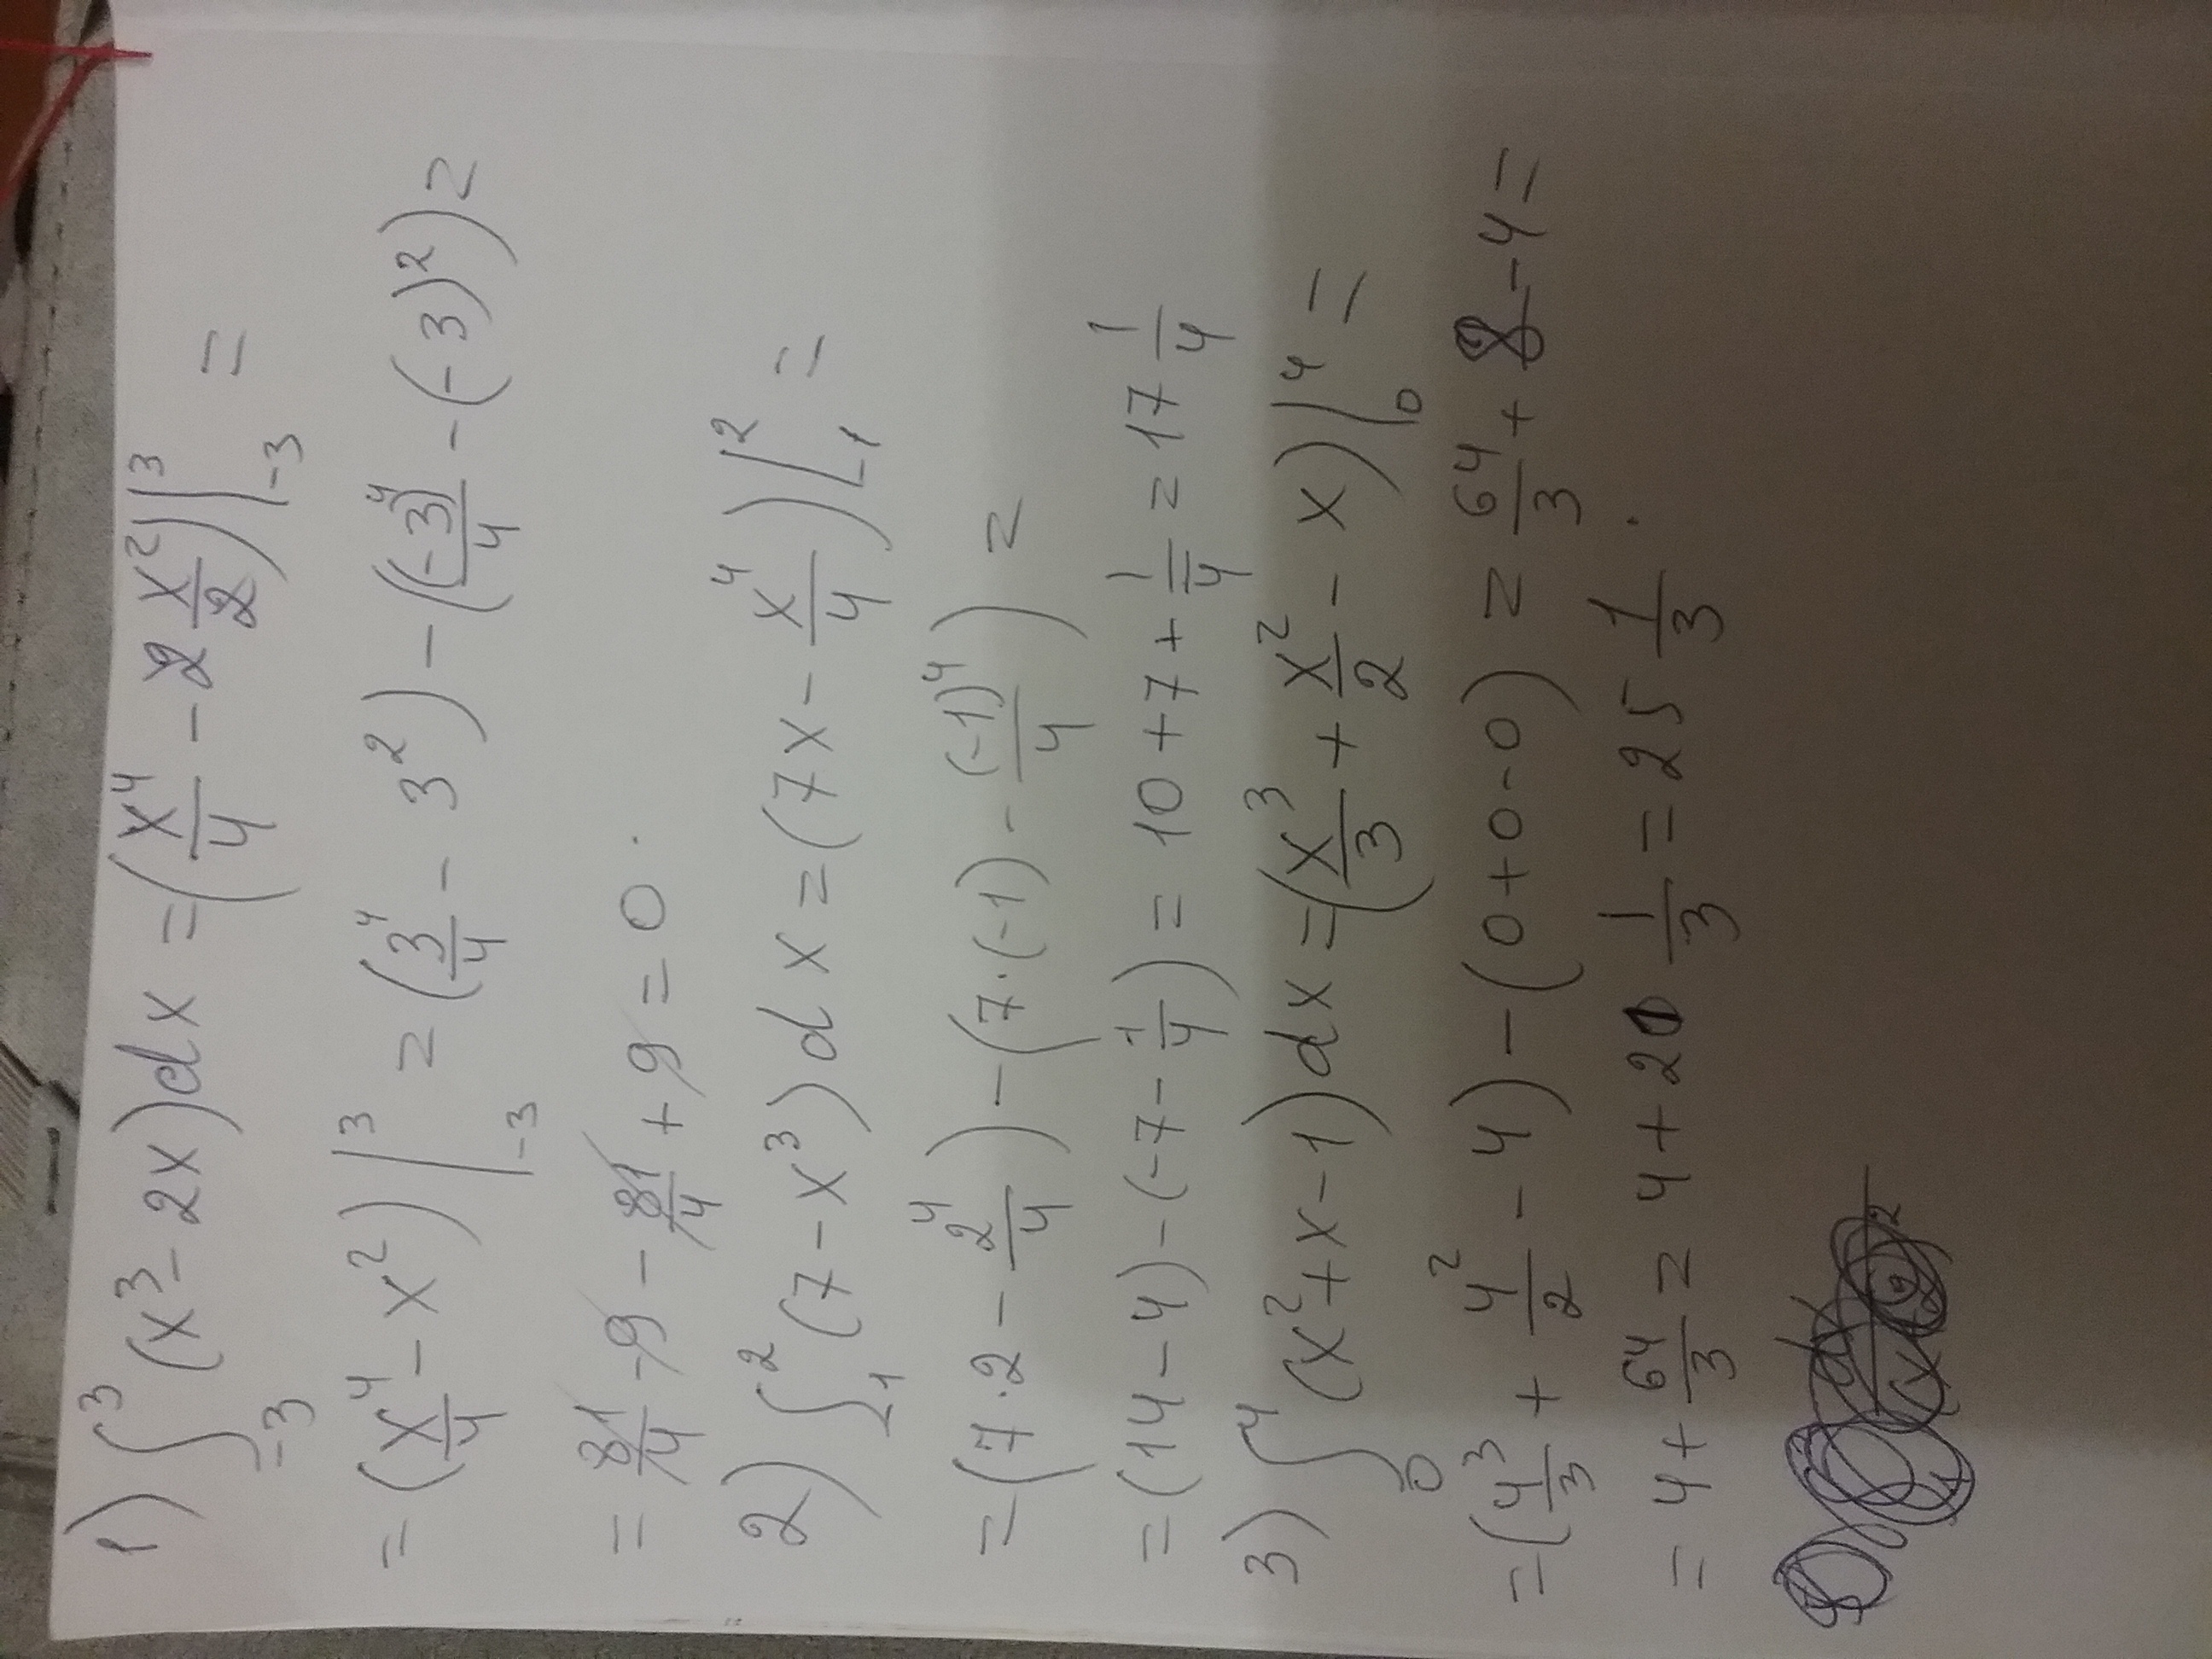 1) ∫_{-3}^{3} (x³ - 2x)dx = (x⁴/4 - 2 x²/2)|_{-3}^{3} =
= (x⁴/4 - x²)|_{-3}^{3} = (3⁴/4 - 3²) - ((-3)⁴/4 - (-3)²) =
= 81/4 - 9 - 81/4 + 9 = 0.
2) ∫_{-1}^{2} (7 - x³)dx = (7x - x⁴/4)|_{-1}^{2} =
= (7·2 - 2⁴/4) - (7·(-1) - (-1)⁴/4) =
= (14 - 4) - (-7 - 1/4) = 10 + 7 + 1/4 = 17 1/4
3) ∫_{0}^{4} (x² + x - 1)dx = (x³/3 + x²/2 - x)|_{0}^{4} =
= (4³/3 + 4²/2 - 4) - (0 + 0 - 0) = 64/3 + 8 - 4 =
= 4 + 64/3 = 4 + 21 1/3 = 25 1/3.